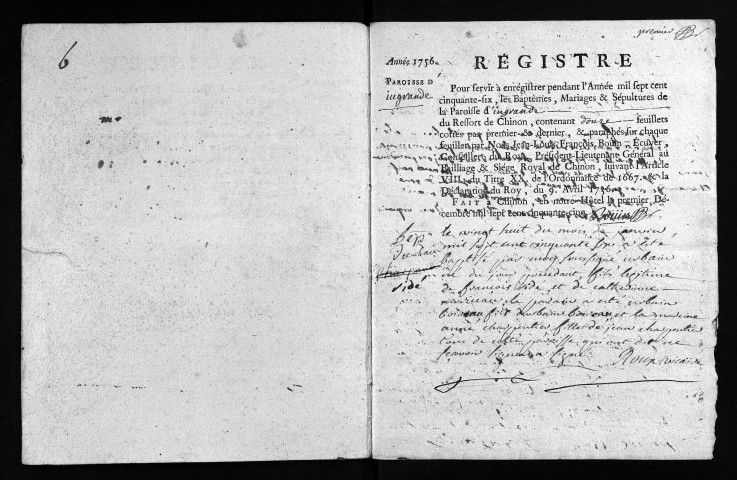 6
premier
Année 1756.
REGISTRE
PAROISSE D'
ingrande
Pour servir à enrégistrer pendant l'Année mil sept cent
cinquante-six, les Baptêmes, Mariages & Sépultures de
la Paroisse d'ingrande
du Ressort de Chinon, contenant douze feuillets
cottés par premier & dernier, & paraphés sur chaque
feuillet par Nous Jean-Louis François Bouin Ecuyer,
Conseiller du Roy, Président-Lieutenant Général au
Bailliage & Siége Royal de Chinon, suivant l'Article
VIII. du Titre XX. de l'Ordonnance de 1667. & la
Déclaration du Roy, du 9. Avril 1736.
FAIT à Chinon, en notre Hôtel le premier Dé-
cembre mil sept cens cinquante-cinq. Bouin
le vingt huit du mois de janvier
mil sept cent cinquante six a eté
baptisé par moy soussigné urbain
né du jour précédent, fils legitime
de françois sidé et de catherine
le parain a eté urbain
fils d'urbain et la maraine
anne charpentier fille de jean charpentier
tous de cette paroisse qui ont dit ne
sçavoir signer
sidé
vicaire